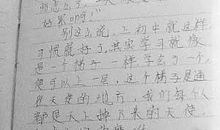 好累啊!!
别这么说,上初中就这样
习惯就好了,其实学习就像
是一个梯子一样学会了一个,
便可以上一层,这个梯子是通
往天使的地方,我们每个人
都是天上掉下来的天使,